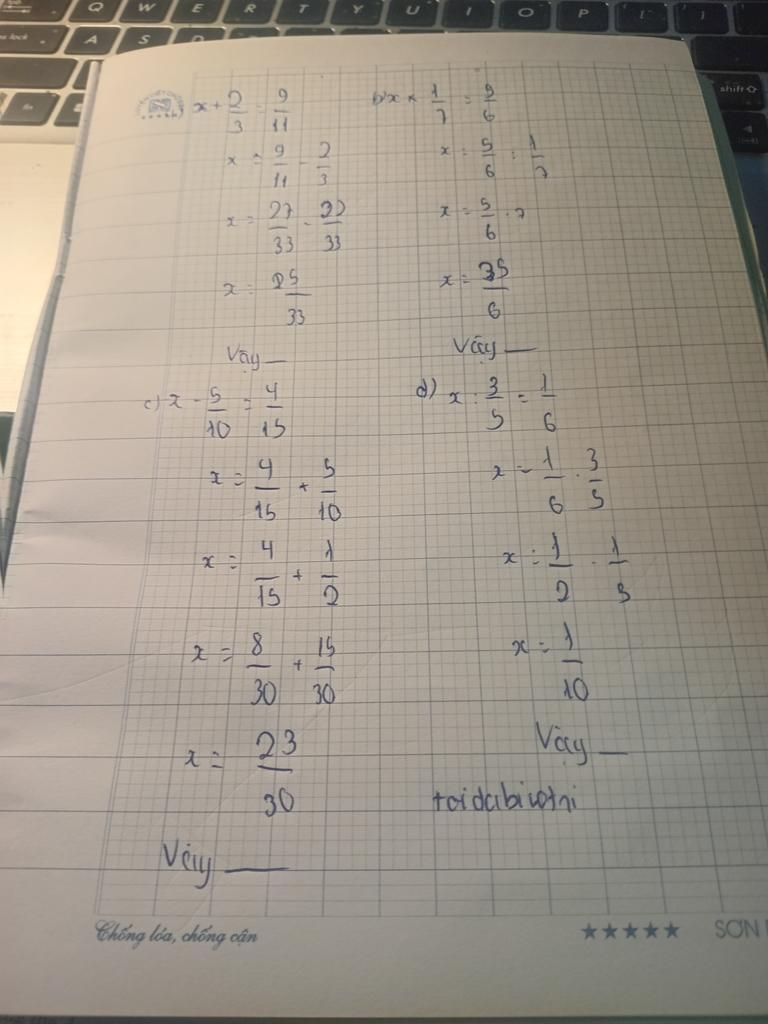 Q W E R T Y U I O P [ ]
A S D
shift
fn
a) x + 2/3 = 9/11
x = 9/11 - 2/3
x = 27/33 - 22/33
x = 25/33
Vậy —
b) x × 1/7 = 5/6
x = 5/6 : 1/7
x = 5/6 . 7
x = 35/6
Vậy —
c) x - 5/10 = 4/15
x = 4/15 + 5/10
x = 4/15 + 1/2
x = 8/30 + 15/30
x = 23/30
Vậy —
d) x : 3/5 = 1/6
x = 1/6 . 3/5
x = 1/2 . 1/5
x = 1/10
Vậy —
Chống lóa, chống cận
★★★★★ SƠN